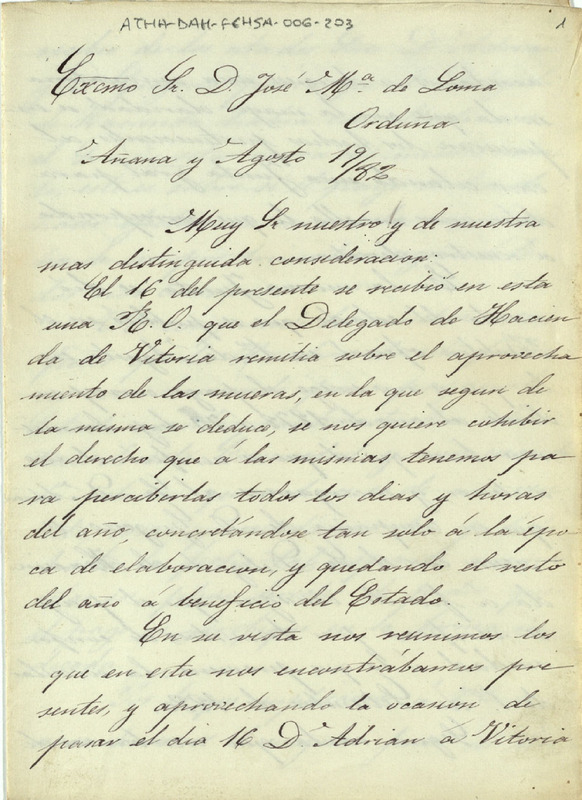 ATHA-DAH-FCHSA-006-203
1
Excmo Sr. D. José Mª de Loma
Orduña
Añana y Agosto 19/82
Muy Sr nuestro y de nuestra
mas distinguida consideracion:
El 16 del presente se recibió en esta
una R.O. que el Delegado de Hacien
da de Vitoria remitia sobre el aprovecha
miento de las mueras, en la que segun de
la misma se deduce, se nos quiere cohibir
el derecho que á las mismas tenemos pa
ra percibirlas todos los dias y horas
del año, concretándose tan solo á la épo
ca de elaboracion, y quedando el resto
del año á beneficio del Estado.
En su vista nos reunimos los
que en esta nos encontrábamos pre
sentes, y aprovechando la ocasion de
pasar el dia 16 D. Adrian á Vitoria